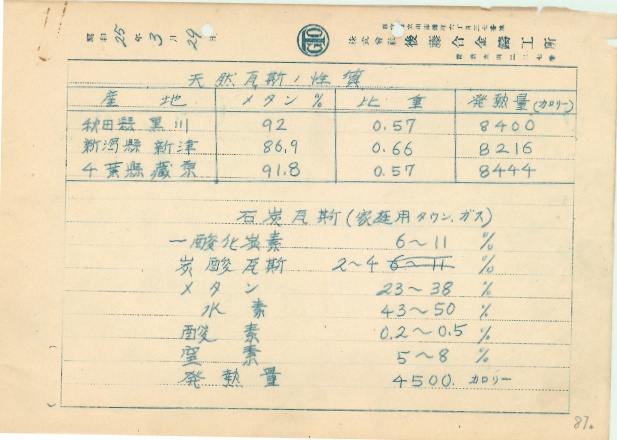 昭和25年3月29日
GTO
株式會社 後藤合金鑄工所
天然瓦斯ノ性質
産地 メタン% 比重 発熱量(カロリー)
秋田縣 黒川 92 0.57 8400
新潟縣 新津 86.9 0.66 8216
千葉縣 茂原 91.8 0.57 8444
石炭瓦斯(家庭用タウン.ガス)
一酸化炭素 6~11 %
炭酸瓦斯 2~4 6~11 %
メタン 23~38 %
水素 43~50 %
酸素 0.2~0.5 %
窒素 5~8 %
発熱量 4500. カロリー
87.